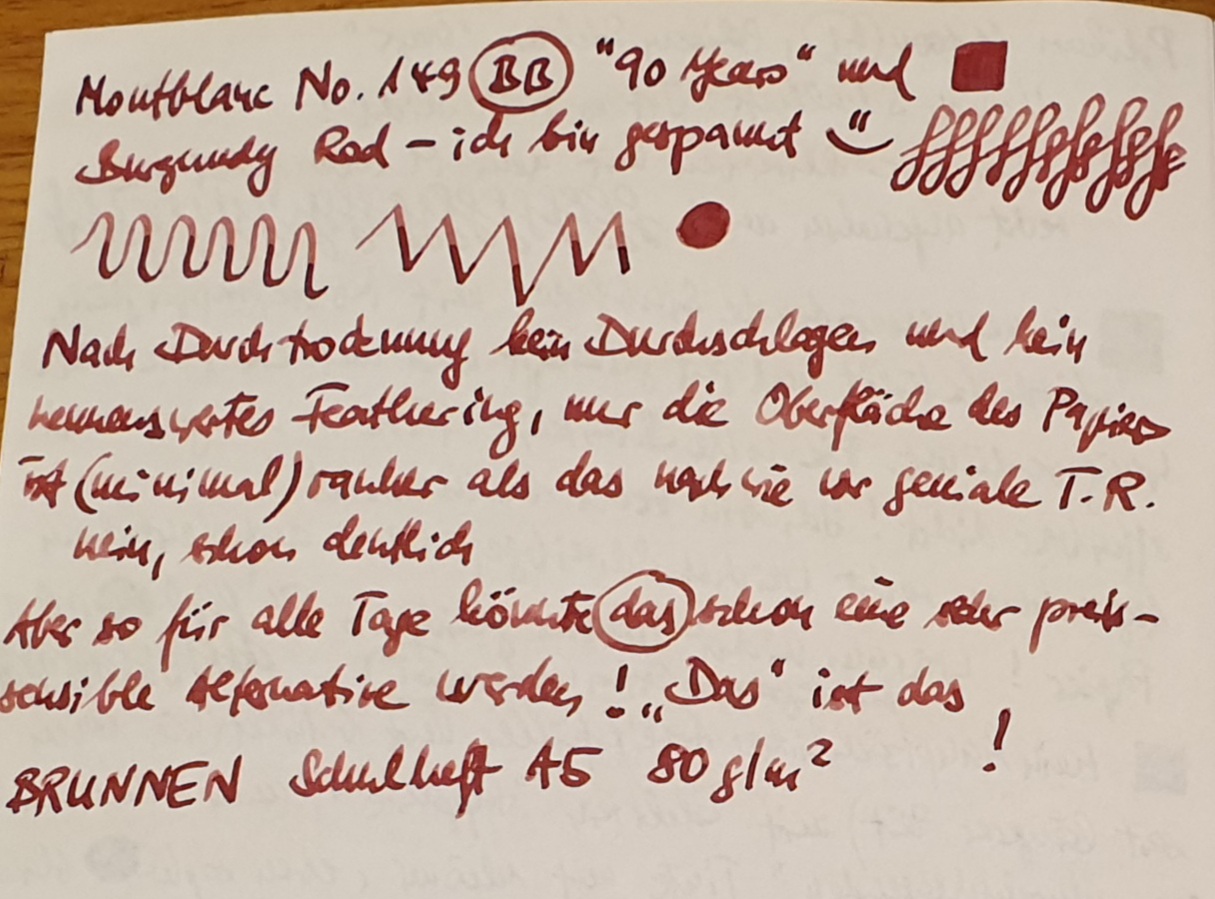 Montblanc No. 149 BB "90 Years" und
Burgundy Red – ich bin gespannt
Nach Durchtrocknung kein Durchschlagen und kein
nennenswertes Feathering, nur die Oberfläche des Papiers
ist (minimal) rauher als das nach wie vor geniale T.R.
nein, schon deutlich
Aber so für alle Tage könnte das schon eine sehr preis-
sensible Alternative werden! „Das" ist das
BRUNNEN Schulheft A5 80 g/m² !